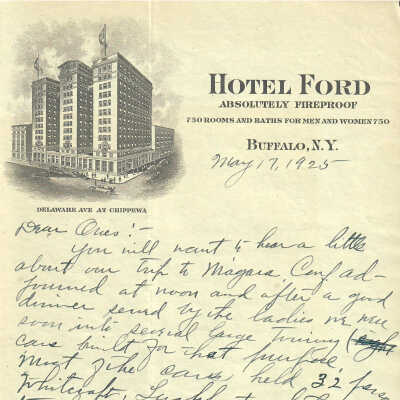 HOTEL FORD
ABSOLUTELY FIREPROOF
750 ROOMS AND BATHS FOR MEN AND WOMEN 750
BUFFALO, N.Y.
May 17, 1925
DELAWARE AVE AT CHIPPEWA
Dear Ones!-
You will want to hear a little
about our trip to Niagara Conf ad-
journed at noon and after a good
dinner served by the ladies we were
soon into several large touring (eight
cars built for that purpose
Most of the cars held 32
Whitcraft,